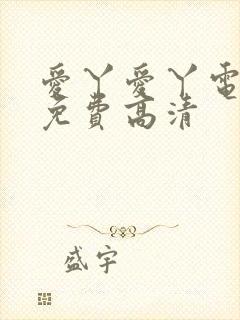 愛丫愛丫電
免費高清
盛宇